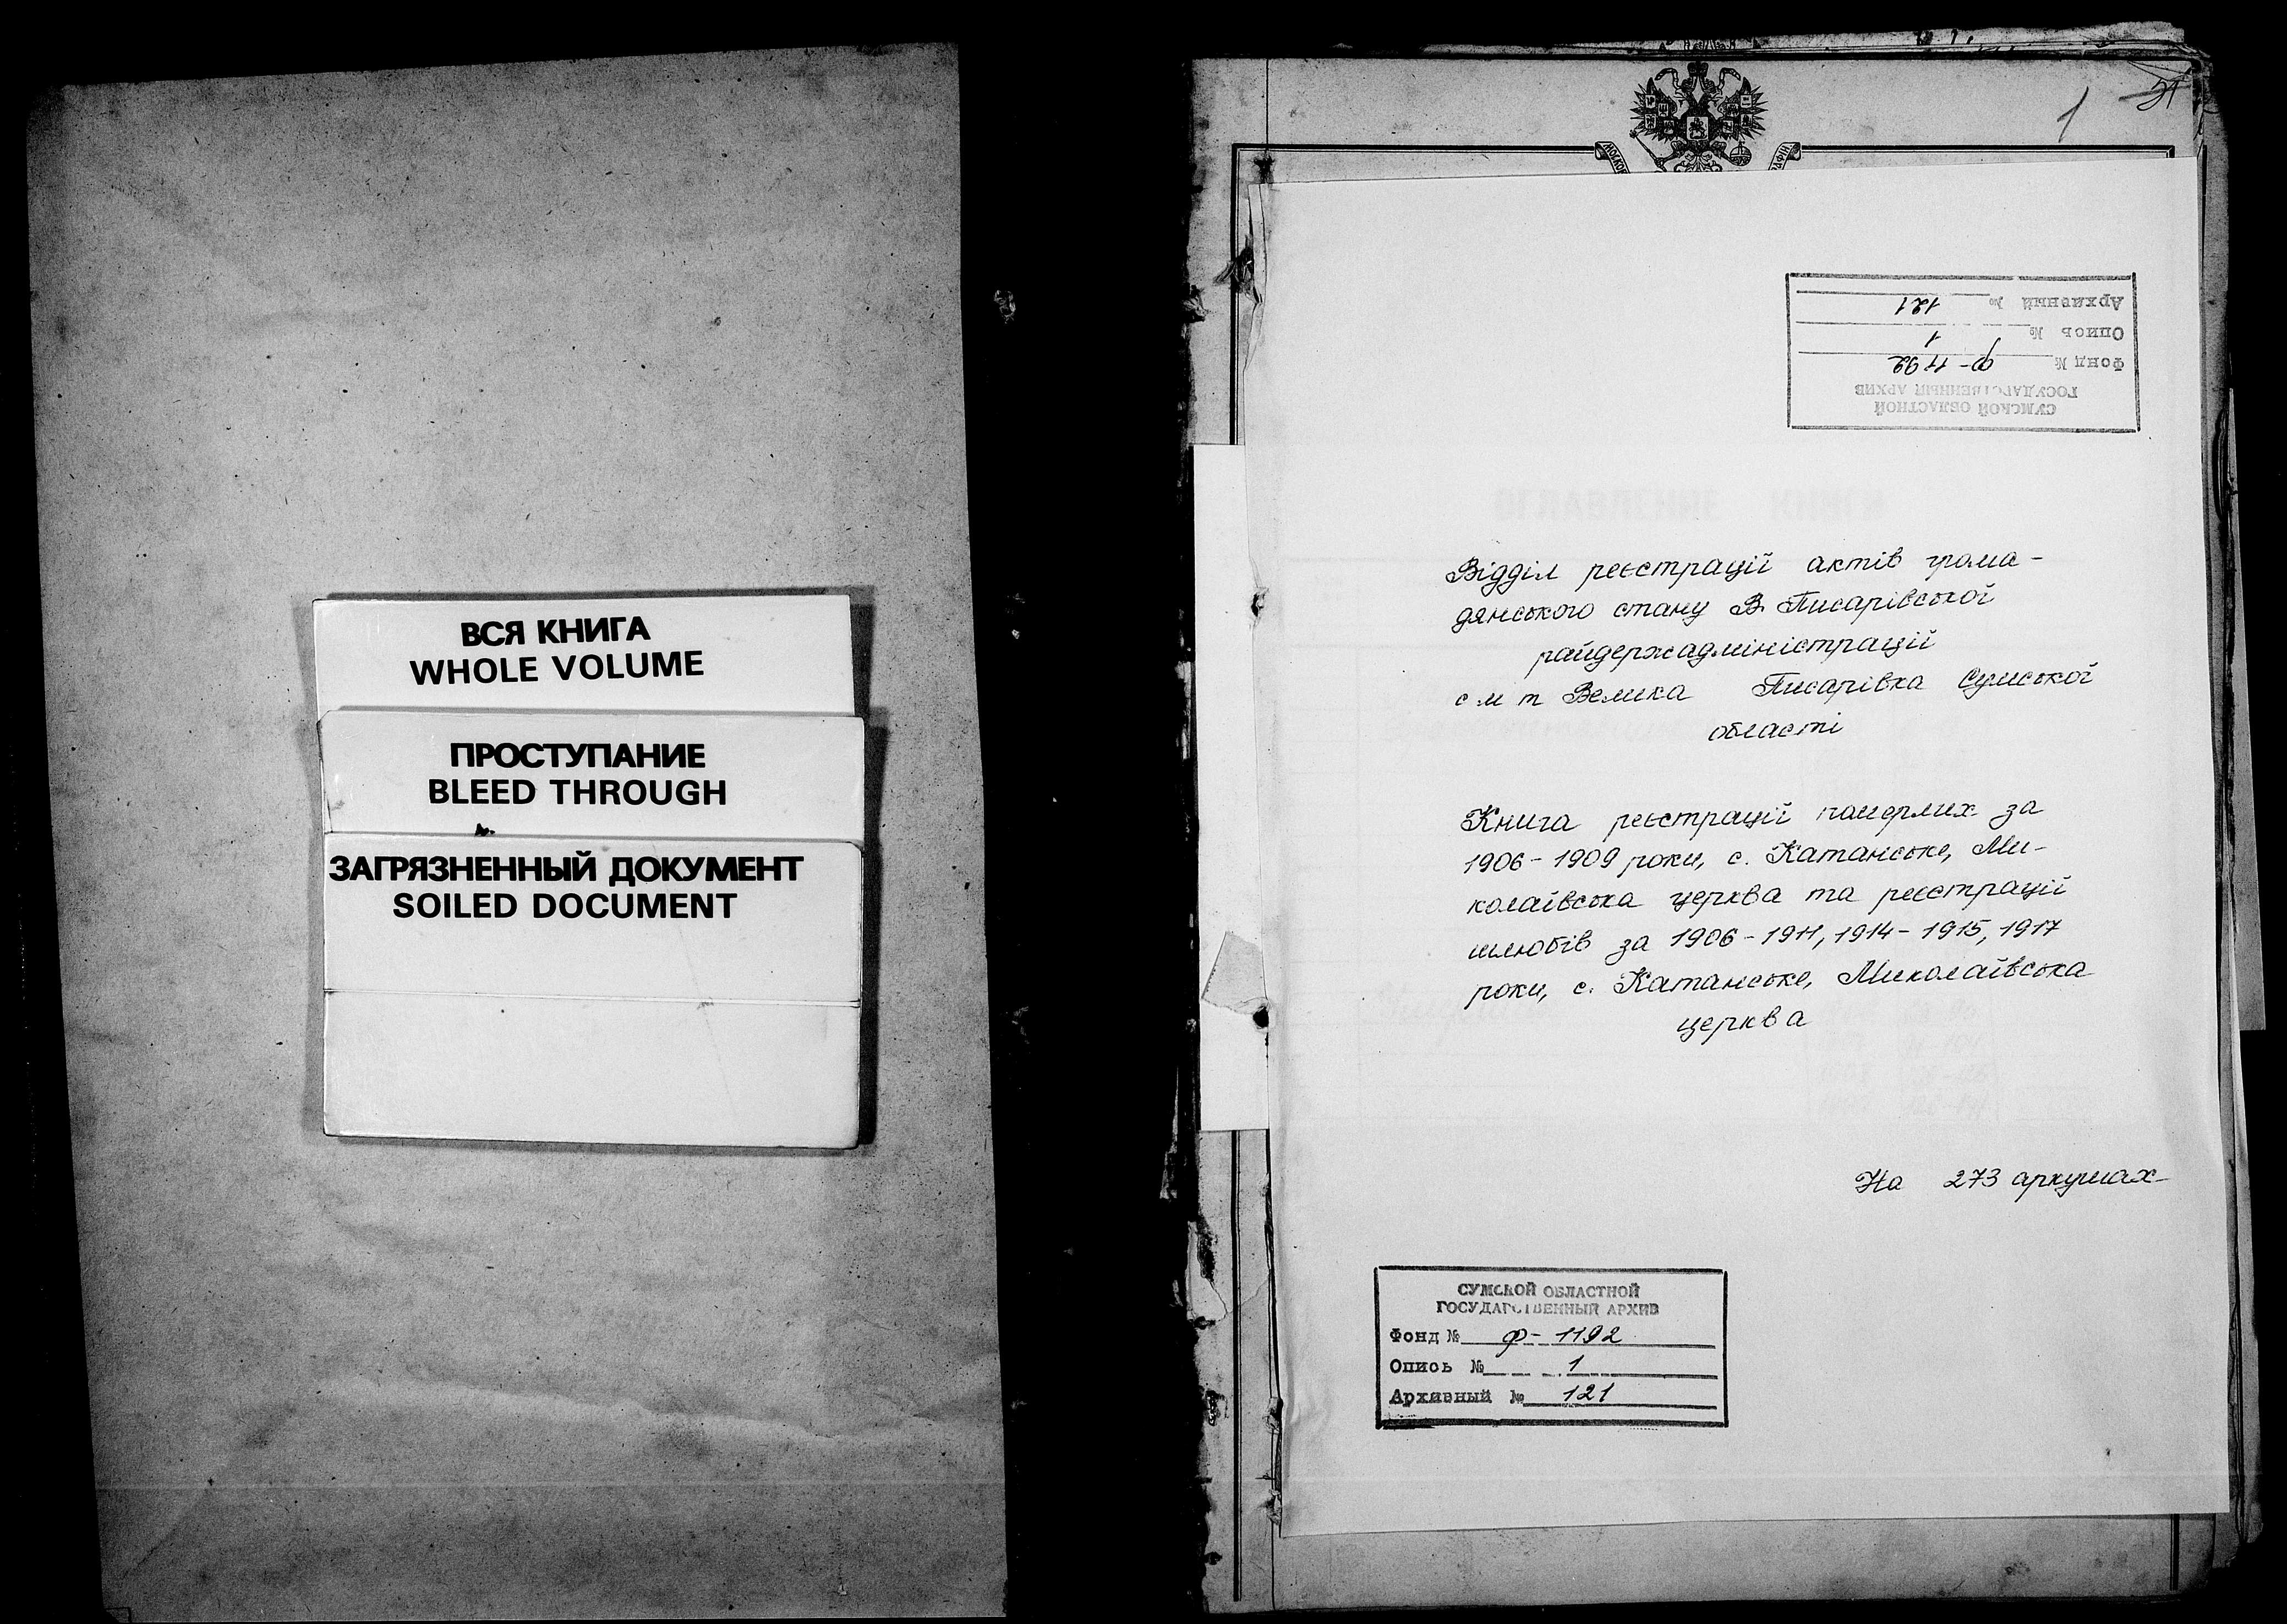 ВСЯ КНИГА
WHOLE VOLUME
ПРОСТУПАНИЕ
BLEED THROUGH
ЗАГРЯЗНЕННЫЙ ДОКУМЕНТ
SOILED DOCUMENT
1
СУМСКОЙ ОБЛАСТНОЙ
ГОСУДАРСТВЕННЫЙ АРХИВ
Фонд № Ф-1192
Опись № 1
Архивный № 121
Відділ реєстрації актів грома-
дянського стану В. Писарівської
райдержадміністрації
смт Велика Писарівка Сумської
області
Книга реєстрації померлих за
1906-1909 роки, с. Катанське, Ми-
колаївська церква та реєстрації
шлюбів за 1906-1911, 1914-1915, 1917
роки, с. Катанське, Миколаївська
церква
На 273 аркушах
СУМСКОЙ ОБЛАСТНОЙ
ГОСУДАРСТВЕННЫЙ АРХИВ
Фонд № Ф-1192
Опись № 1
Архивный № 121